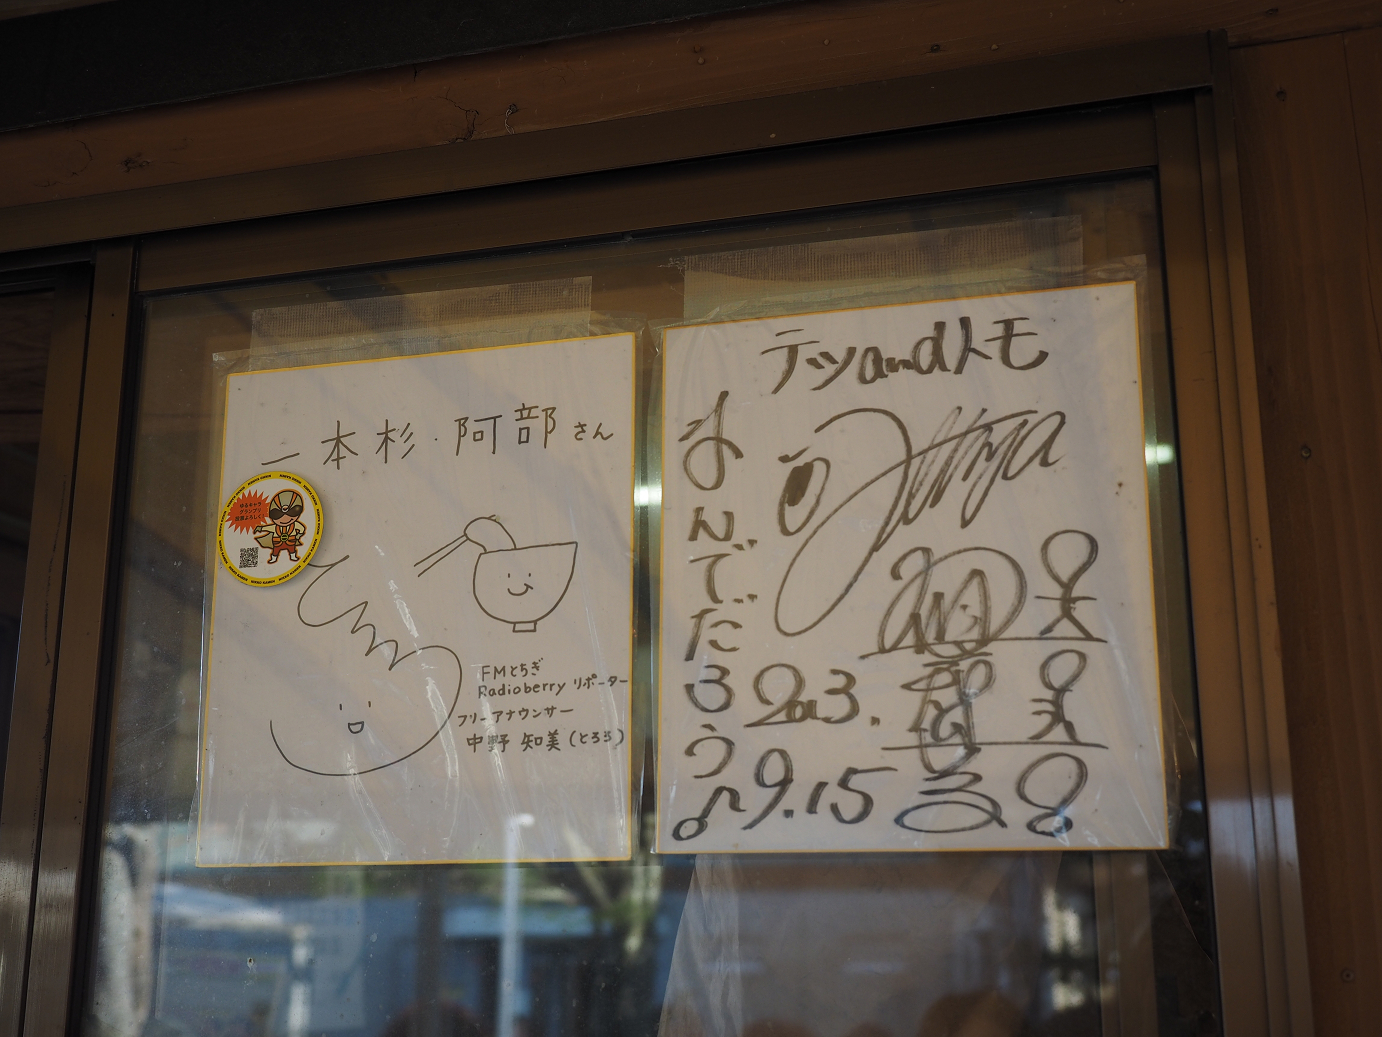 一本杉・阿部さん
ゆるキャラ
グランプリ
FMとちぎ
Radioberry リポーター
フリーアナウンサー
中野 知美(とろろ)
テツandトモ
なんでだろう♪
2013.
9.15